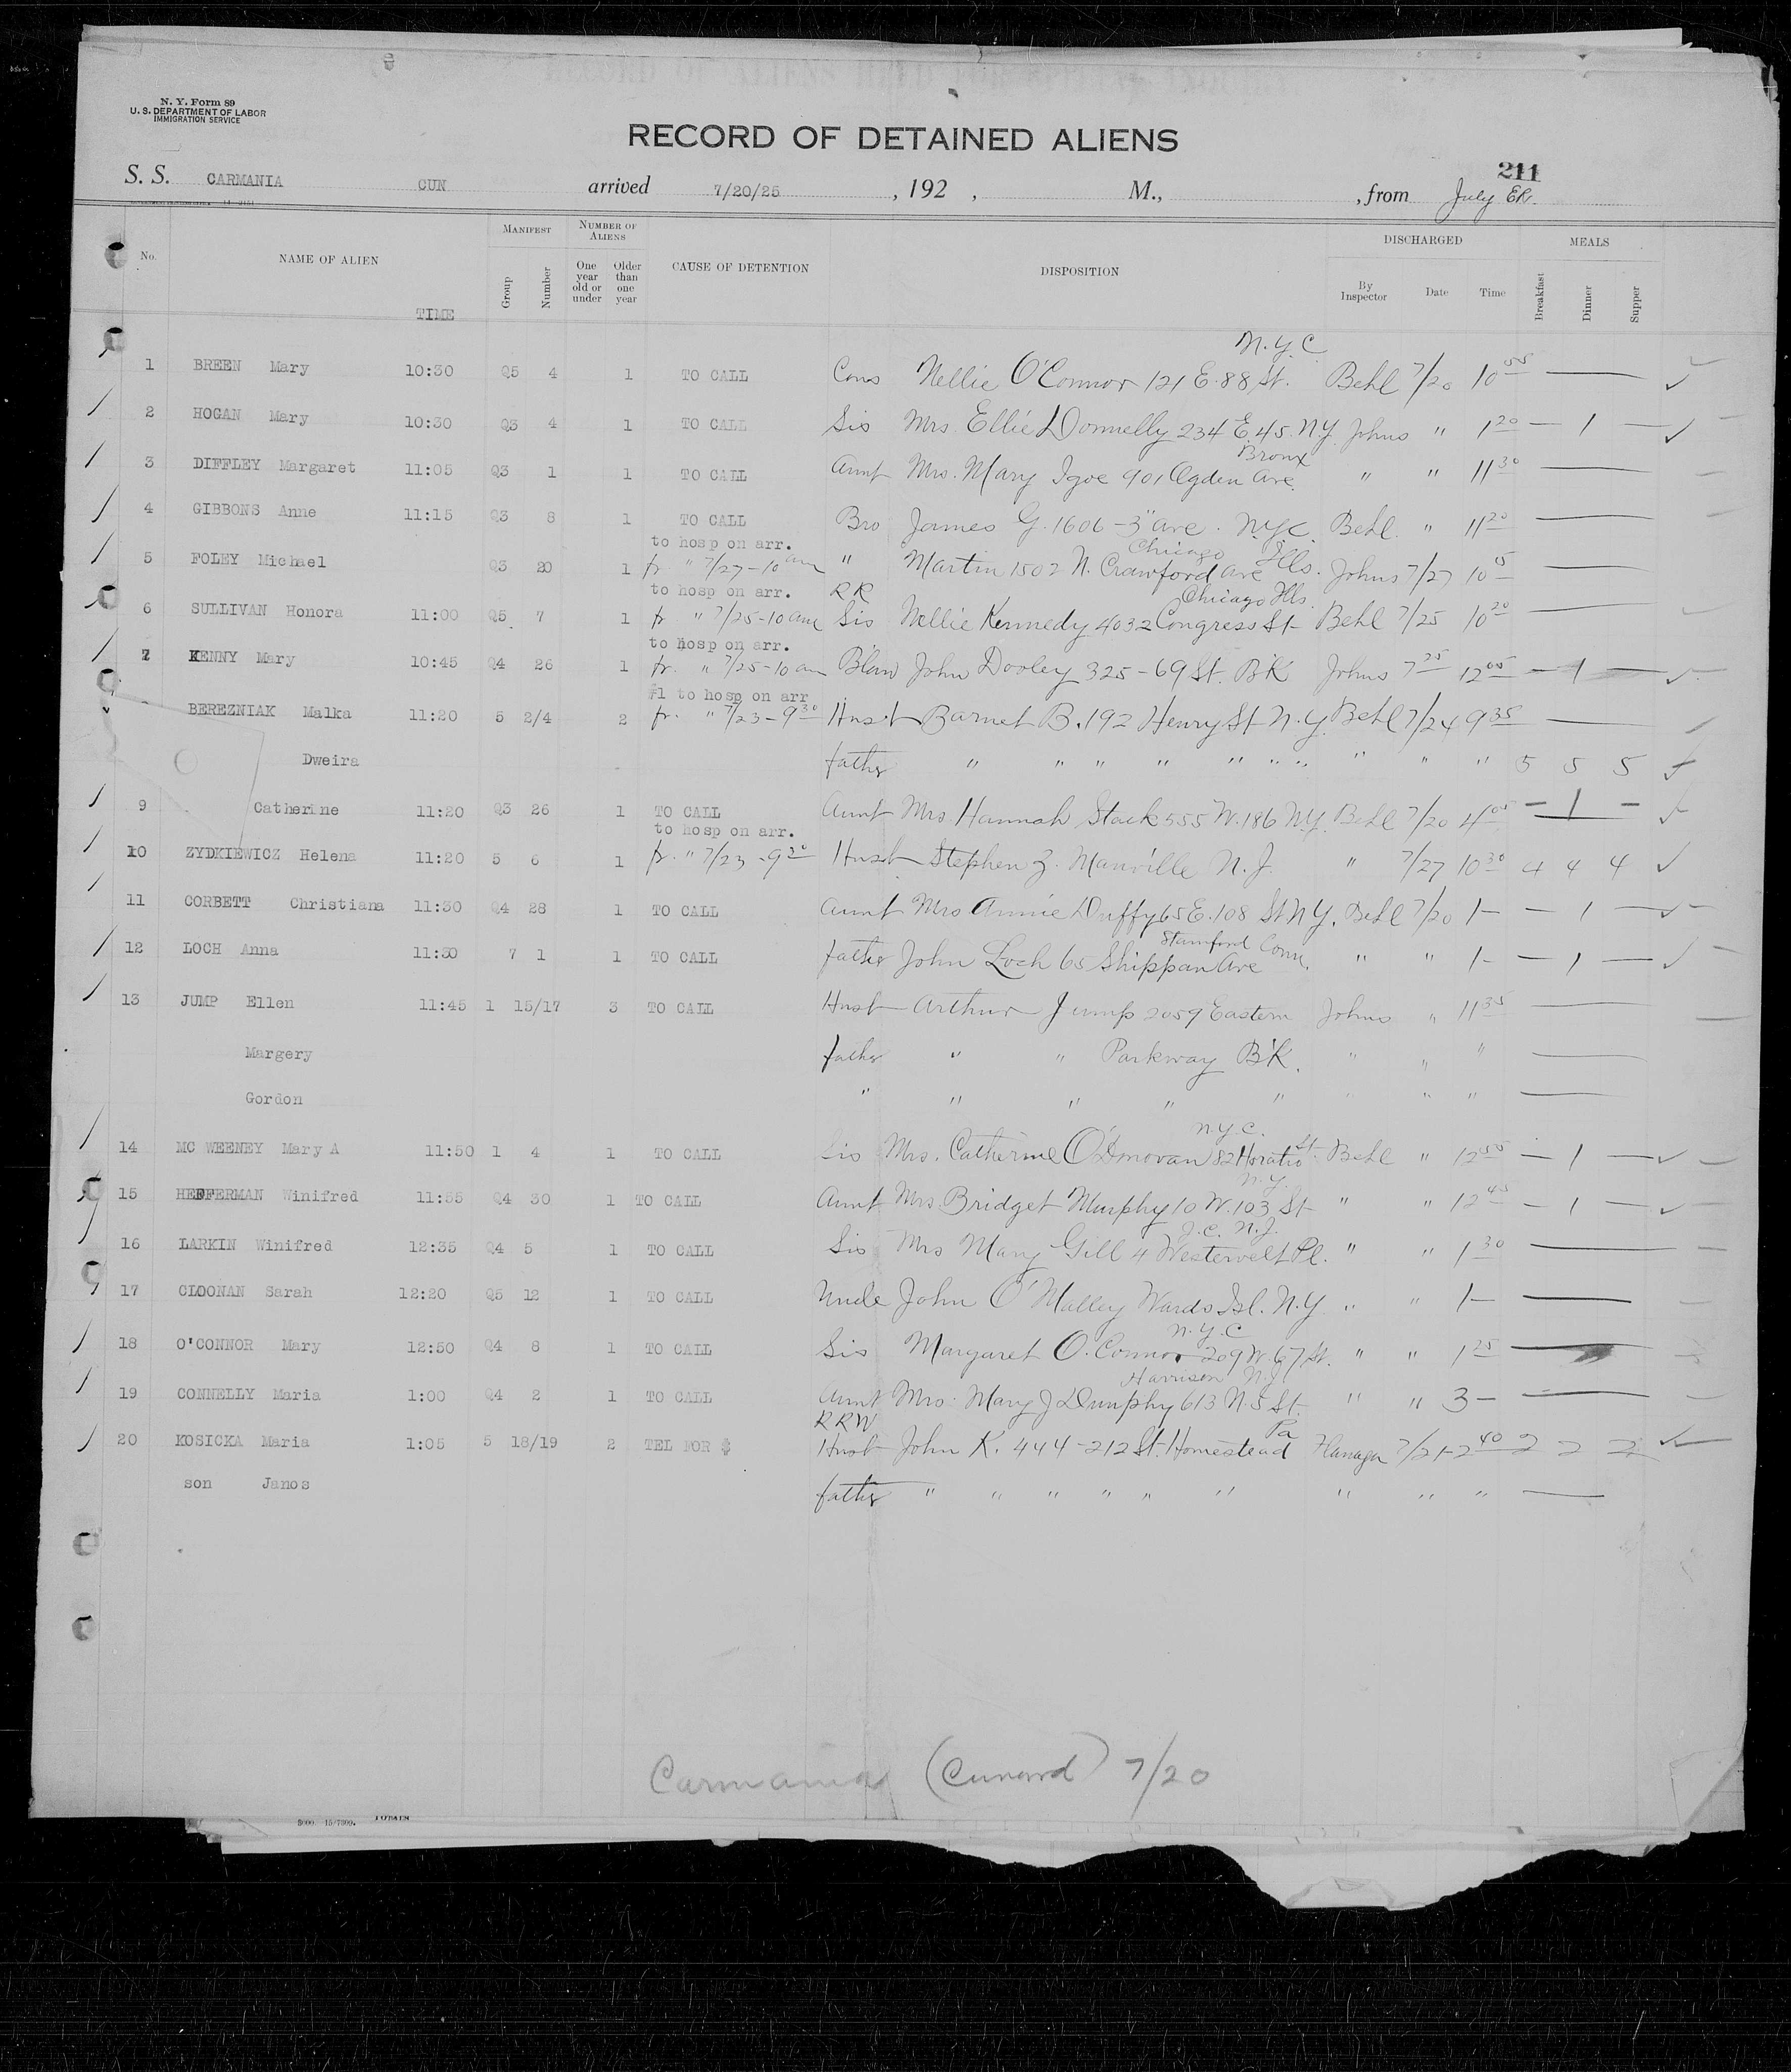 N. Y. Form 89
U. S. DEPARTMENT OF LABOR
IMMIGRATION SERVICE
RECORD OF DETAINED ALIENS
211
S. S. CARMANIA CUN arrived 7/20/25 , 192 , M., , from July
No. NAME OF ALIEN TIME MANIFEST Group Number NUMBER OF ALIENS One year old or under Older than one year CAUSE OF DETENTION DISPOSITION DISCHARGED By Inspector Date Time MEALS Breakfast Dinner Supper
N.Y.C
1 BREEN Mary 10:30 Q5 4 1 TO CALL Cous Nellie O'Connor 121 E. 88 St. Behl 7/20 10 55 —
2 HOGAN Mary 10:30 Q3 4 1 TO CALL Sis Mrs. Ellie Donnelly 234 E. 45. N.Y. Johns " 1 20 — 1 —
Bronx
3 DIFFLEY Margaret 11:05 Q3 1 1 TO CALL Aunt Mrs. Mary Igoe 901 Ogden Ave. " " 11 30 —
4 GIBBONS Anne 11:15 Q3 8 1 TO CALL Bro James G. 1606 - 3" Ave. N.Y.C. Behl " 11 20 —
to hosp on arr. Chicago Ills.
5 FOLEY Michael Q3 20 1 fr " 7/27 - 10 am " Martin 1502 N. Crawford Ave Johns 7/27 10 05 —
to hosp on arr. RR Chicago Ills.
6 SULLIVAN Honora 11:00 Q5 7 1 fr " 7/25 - 10 am Sis Nellie Kennedy 4032 Congress St Behl 7/25 10 20 —
to hosp on arr.
7 KENNY Mary 10:45 Q4 26 1 fr. " 7/25 - 10 am B'law John Dooley 325 - 69 St. B'K Johns 7 25 12 05 — 1 —
#1 to hosp on arr
BEREZNIAK Malka 11:20 5 2/4 2 fr. " 7/23 - 9 30 Husb Barnet B. 192 Henry St N.Y. Behl 7/24 9 35 —
Dweira father " " " " " " " " " " 5 5 5
9 Catherine 11:20 Q3 26 1 TO CALL Aunt Mrs Hannah Stack 555 W. 186 N.Y. Behl 7/20 4 05 — 1 —
to hosp on arr.
10 ZYDKIEWICZ Helena 11:20 5 6 1 fr. " 7/23 - 9 30 Husb Stephen Z. Manville N.J. " 7/27 10 30 4 4 4
11 CORBETT Christiana 11:30 Q4 28 1 TO CALL Aunt Mrs Annie Duffy 65 E. 108 St N.Y. Behl 7/20 1 — — 1 —
Stamford Conn.
12 LOCH Anna 11:30 7 1 1 TO CALL father John Loch 65 Shippan Ave " " 1 — — 1 —
13 JUMP Ellen 11:45 1 15/17 3 TO CALL Husb Arthur Jump 2059 Eastern Johns " 11 35 —
Margery father " " Parkway B'K. " " " —
Gordon " " " " " " " " —
N.Y.C.
14 MC WEENEY Mary A 11:50 1 4 1 TO CALL Sis Mrs. Catherine O'Donovan 82 Horatio St Behl " 12 55 — 1 —
N.Y.
15 HEFFERMAN Winifred 11:55 Q4 30 1 TO CALL Aunt Mrs. Bridget Murphy 10 W. 103 St " " 12 45 — 1 —
J.C. N.J.
16 LARKIN Winifred 12:35 Q4 5 1 TO CALL Sis Mrs Mary Gill 4 Westervelt Pl. " " 1 30 —
17 CLOONAN Sarah 12:20 Q5 12 1 TO CALL Uncle John O'Malley Wards Isl. N.Y. " " 1 — —
N.Y.C
18 O'CONNOR Mary 12:50 Q4 8 1 TO CALL Sis Margaret O'Connor 209 W. 67 St. " " 1 25 —
Harrison N.J.
19 CONNELLY Maria 1:00 Q4 2 1 TO CALL Aunt Mrs. Mary J Dunphy 613 N. 5 St. " " 3 — —
RRW Pa
20 KOSICKA Maria 1:05 5 18/19 2 TEL FOR $ Husb John K. 444 - 212 St. Homestead Flanagan 7/21 2 40 2 2 2
son Janos father " " " " " " " " " —
Carmania (Cunard) 7/20
3000 15/7309. TOTALS